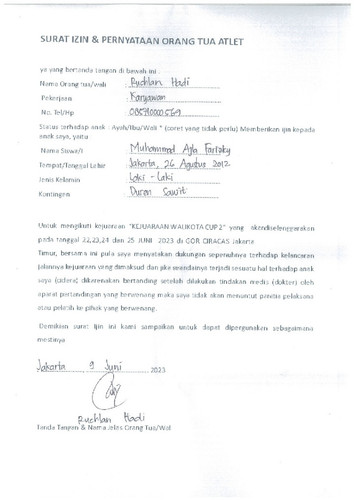 SURAT IZIN & PERNYATAAN ORANG TUA ATLET
ya yang bertanda tangan di bawah ini :
Nama Orang tua/wali : Ruchlan Hadi
Pekerjaan : Karyawan
No. Tel/Hp :
Status terhadap anak : Ayah/Ibu/Wali * (coret yang tidak perlu) Memberikan ijin kepada
anak saya, yaitu
Nama Siswa/i : Muhammad
Tempat/Tanggal Lahir : Jakarta, 26 Agustus 2012
Jenis Kelamin : Laki - Laki
Kontingen : Duren Sawit
Untuk mengikuti kejuaraan "KEJUARAAN WALIKOTA CUP 2" yang akandiselenggarakan
pada tanggal 22,23,24 dan 25 JUNI 2023 di GOR CIRACAS Jakarta
Timur, bersama ini pula saya menyatakan dukungan sepenuhnya terhadap kelancaran
jalannya kejuaraan yang dimaksud dan jika seandainya terjadi sesuatu hal terhadap anak
saya (cidera) dikarenakan bertanding setelah dilakukan tindakan medis (dokter) oleh
aparat pertandingan yang berwenang maka saya tidak akan menuntut panitia pelaksana
atau pelatih ke pihak yang berwenang.
Demikian surat Ijin ini kami sampaikan untuk dapat dipergunakan sebagaimana
mestinya
Jakarta, 9 Juni 2023
Ruchlan Hadi
Tanda Tangan & Nama Jelas Orang Tua/Wal